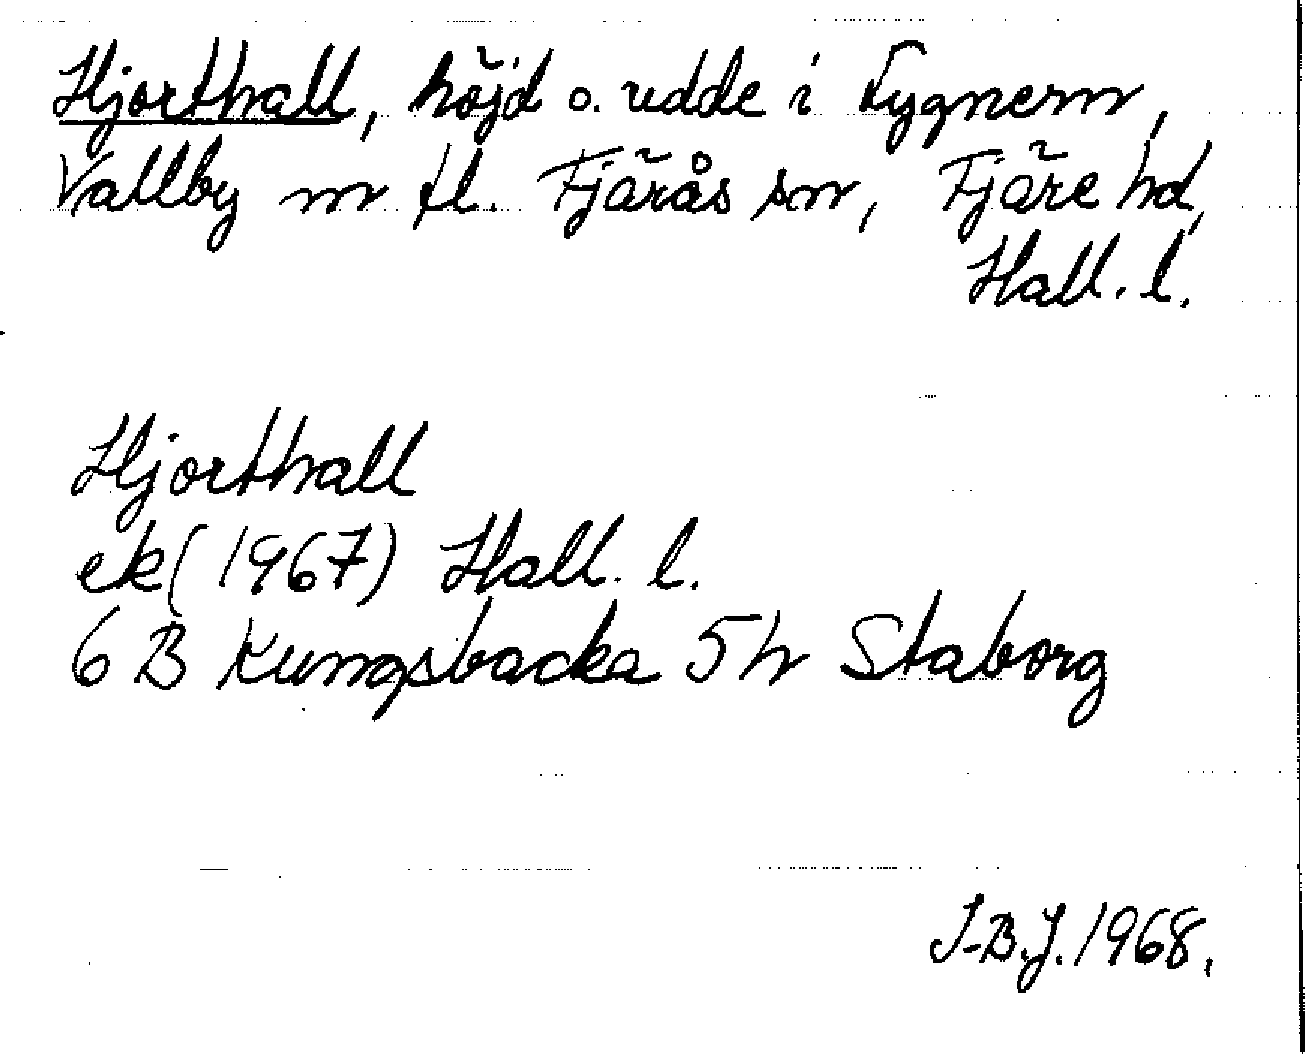 Hjorthall, höjd o. udde i Lygnern,
Vallby m fl. Fjärås sn, Fjäre hd,
Hall. l.
Hjorthall
ek (1967) Hall. l.
6 B Kungsbacka 5 h Staborg
I-B.J. 1968.